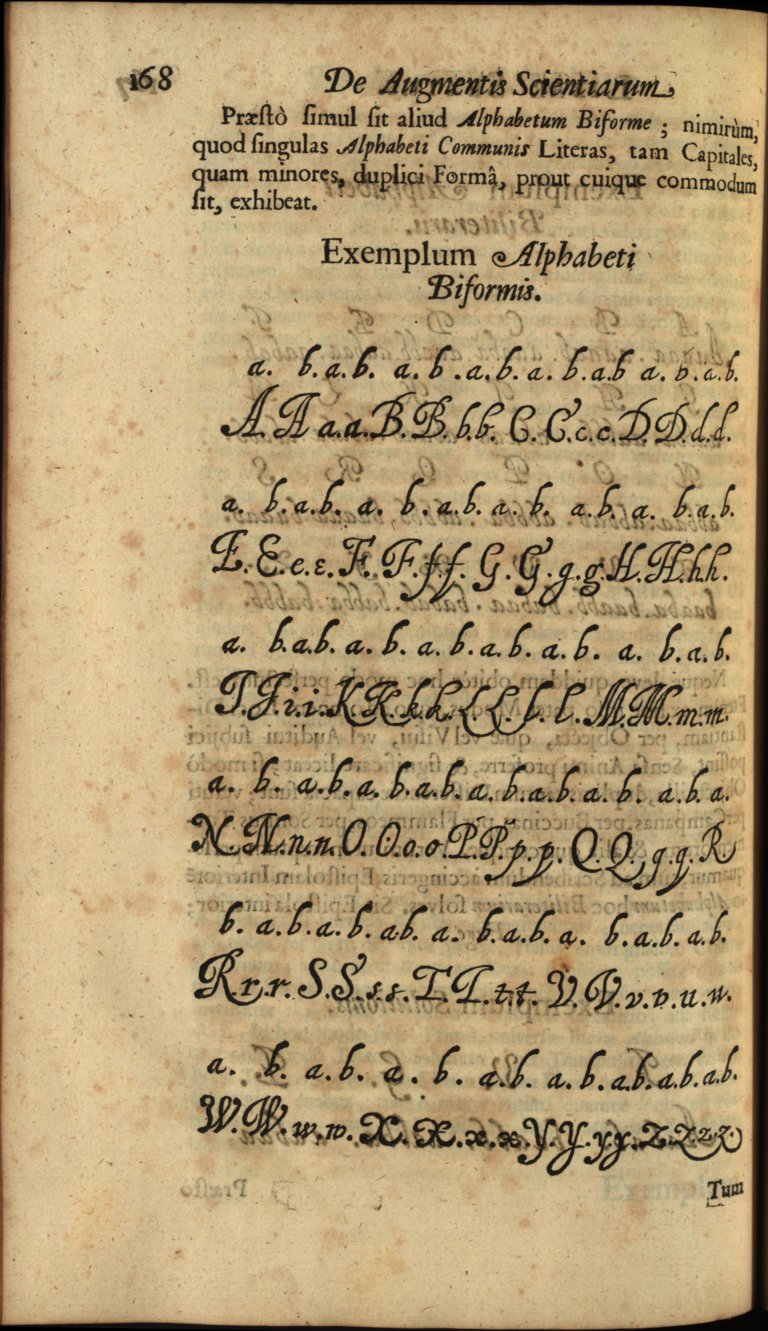 168 De Augmentis Scientiarum
Præſtò ſimul ſit aliud Alphabetum Biforme ; nimirùm,
quod ſingulas Alphabeti Communis Literas, tam Capitales,
quam minores, duplici Formâ, prout cuique commodum
ſit, exhibeat.
Exemplum Alphabeti
Biformis.
a. b.a.b. a. b .a.b. a. b.a.b a. b.a.b.
A A a.a.B.B.b.b. C.C.c.c.D.D.d.d.
a. b.a.b. a. b.a.b. a. b. a.b. a. b.a.b.
E.E.e.e.F.F.f.f.G.G.g.g.H.H.h.h.
a. b.a.b. a. b. a. b. a. b. a. b. a. b.a.b.
I.I.i.i.K.K.k.k.L.L.l.l.M.M.m.m.
a. b. a.b.a. b.a.b.a. b.a.b.a.b. a.b.a.
N.N.n.n.O.O.o.o.P.P.p.p.Q.Q.q.q.R
b. a.b.a.b. ab. a. b.a.b. a. b.a.b. a.b.
R.r.r.S.S.s.s.T.T.t.t.V.V.v.v.u.u.
a. b. a.b. a. b. a.b. a.b. a.b.a.b.a.b.
W.W.w.w.X.X.x.x.Y.Y.y.y.Z.Z.z.z.
Tum